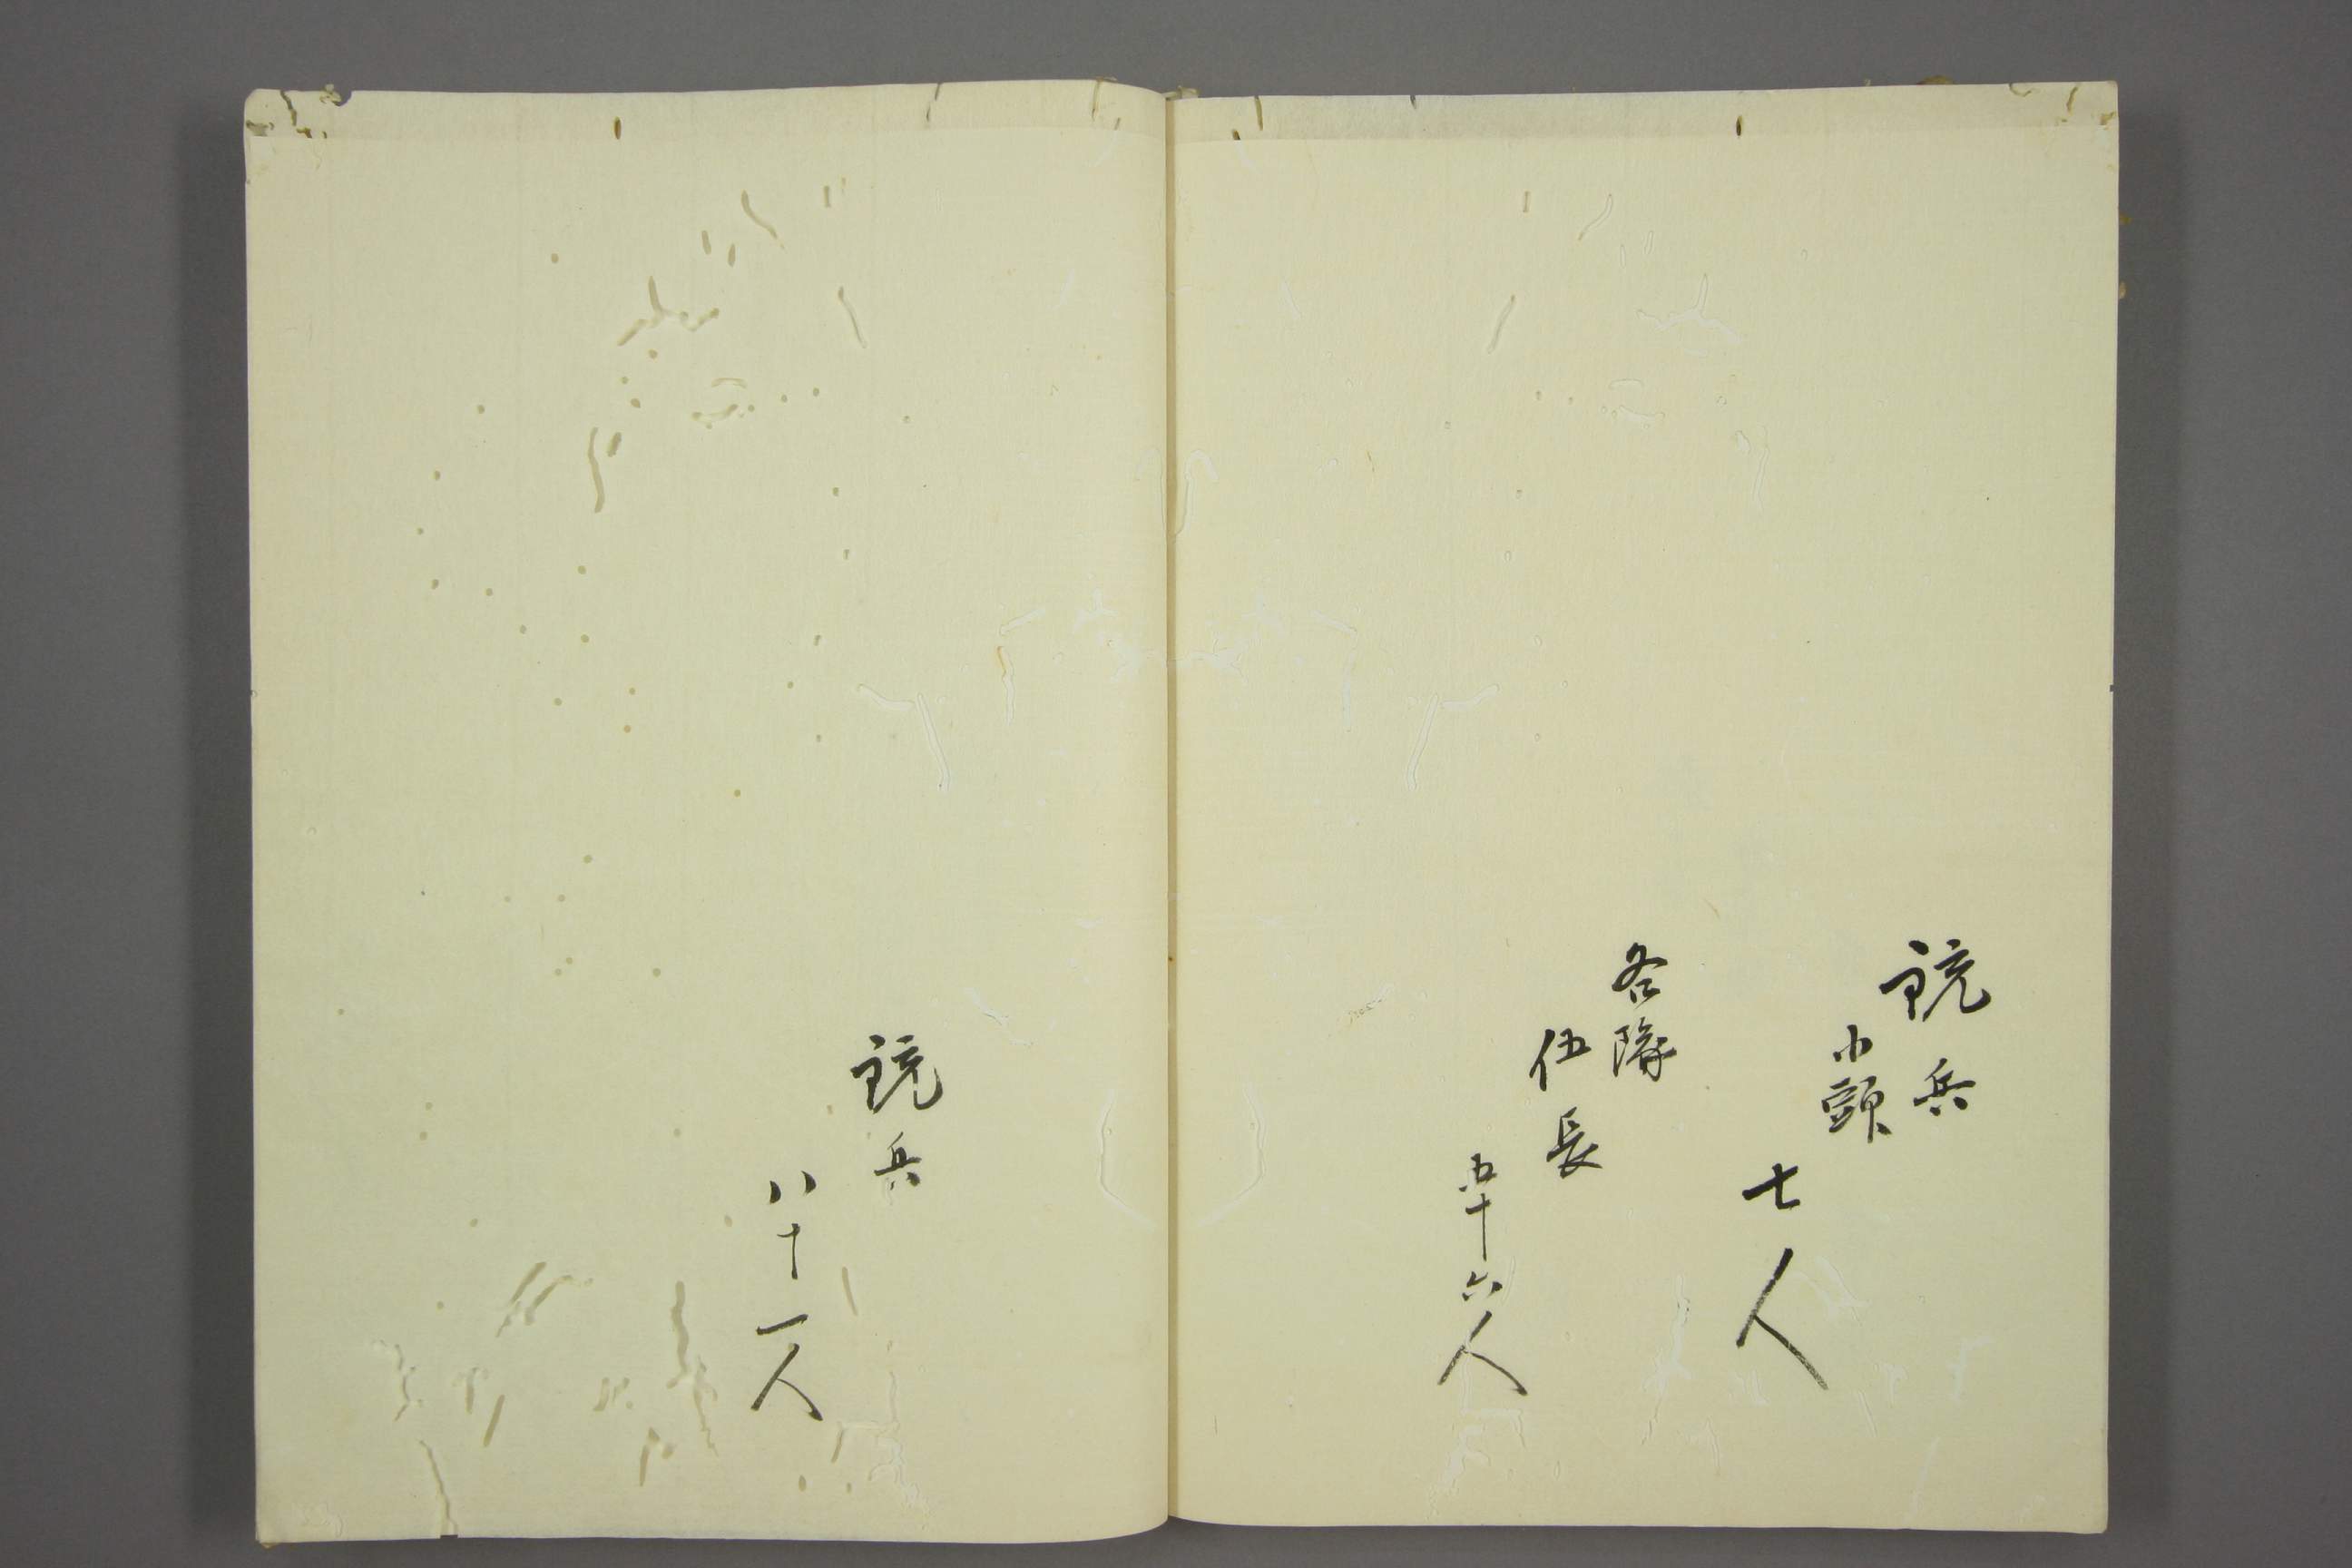 銃兵
小頭
七人
各隊
伍長
五十六人
銃兵
八十一人